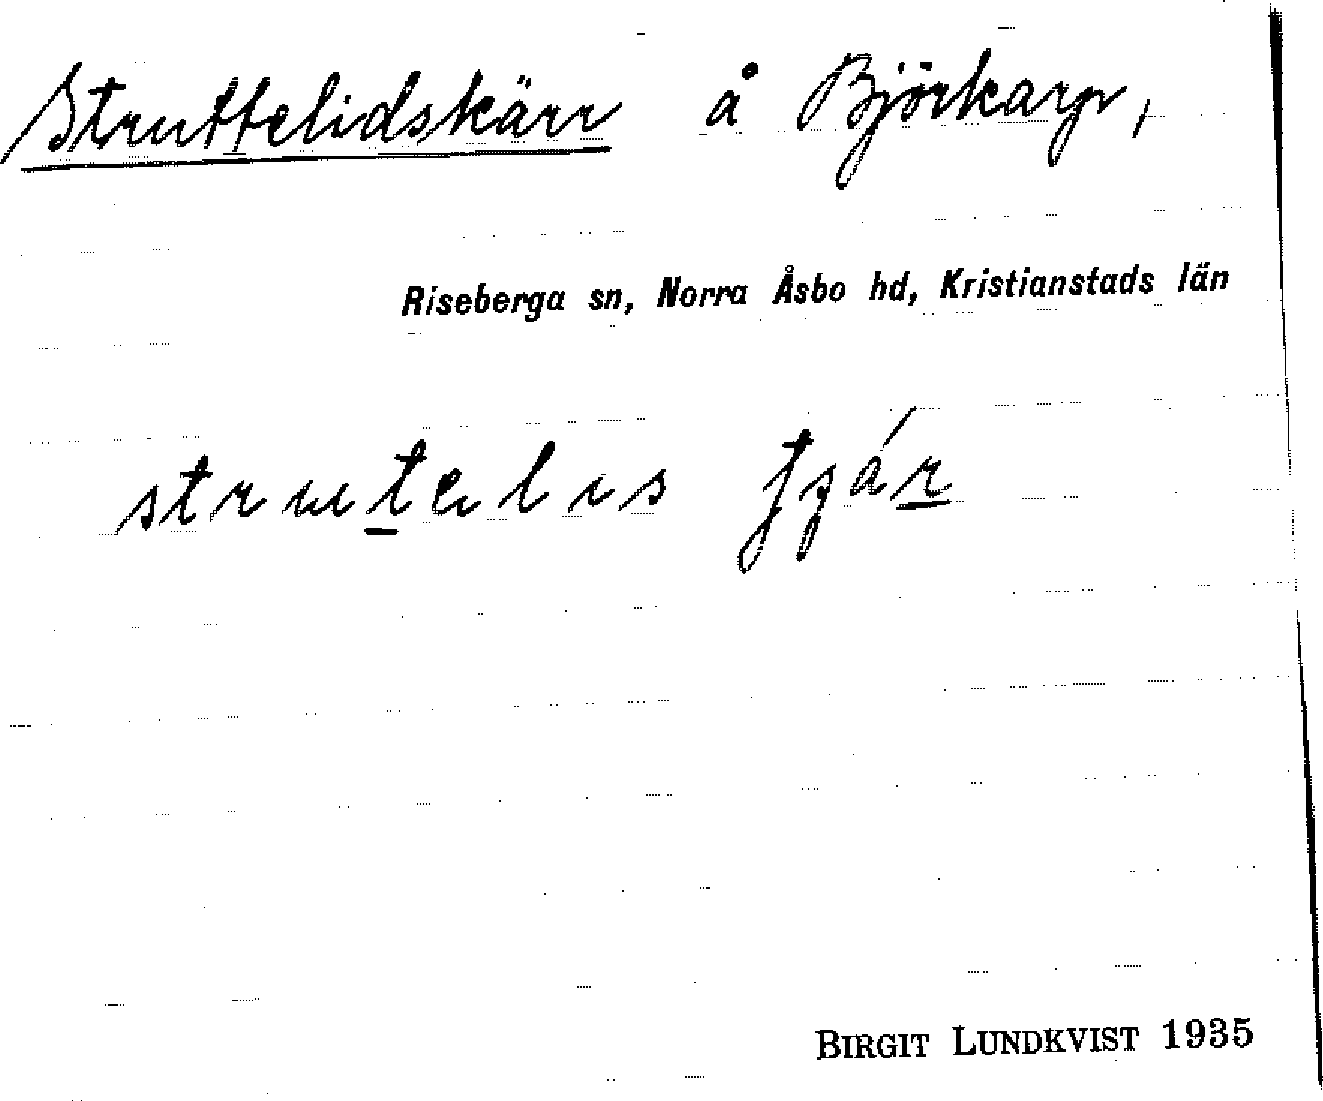 Struttelidskärr å Björkarp,
Riseberga sn, Norra Åsbo hd, Kristianstads län
BIRGIT LUNDKVIST 1935